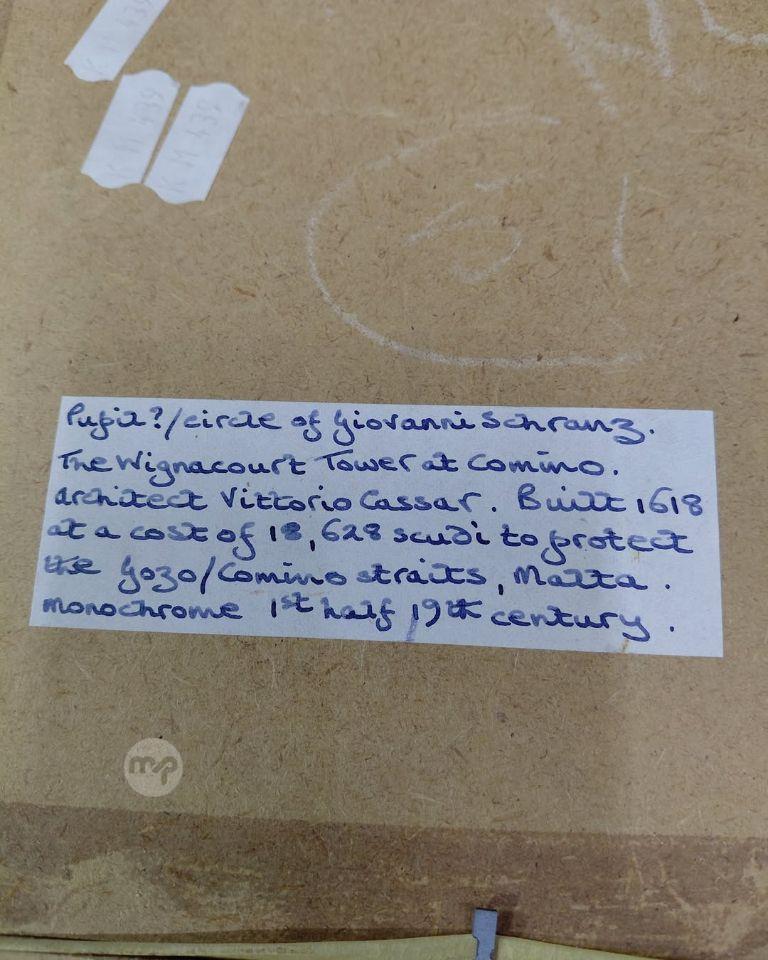 KM 439
KM 439
KM 439
Pupil?/circle of Giovanni Schranz.
The Wignacourt Tower at Comino.
architect Vittorio Cassar. Built 1618
at a cost of 18,628 scudi to protect
the Gozo/Comino straits, Malta.
monochrome 1st half 19th century.
mp